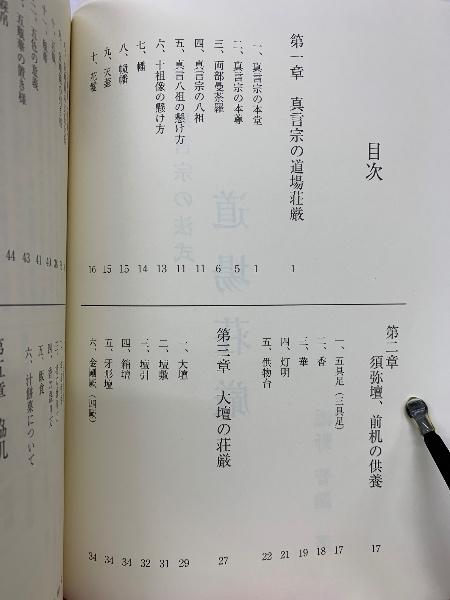 目次
第一章 真言宗の道場荘厳 1
一、真言宗の本堂 1
二、真言宗の本尊 5
三、両部曼荼羅 6
四、真言宗の八祖 11
五、真言八祖の懸け方 11
六、十祖像の懸け方 13
七、幡 14
八、幢幡 15
九、天蓋 15
十、花鬘 16
第二章 須弥壇、前机の供養 17
一、五具足（三具足） 17
二、香 18
三、華 19
四、灯明 21
五、供物台 22
第三章 大壇の荘厳 27
一、大壇 29
二、壇敷 31
三、壇引 32
四、箱壇 34
五、牙形壇 34
六、金剛橛（四橛） 34
41
43
44
五、飯食
六、汁餅菓について